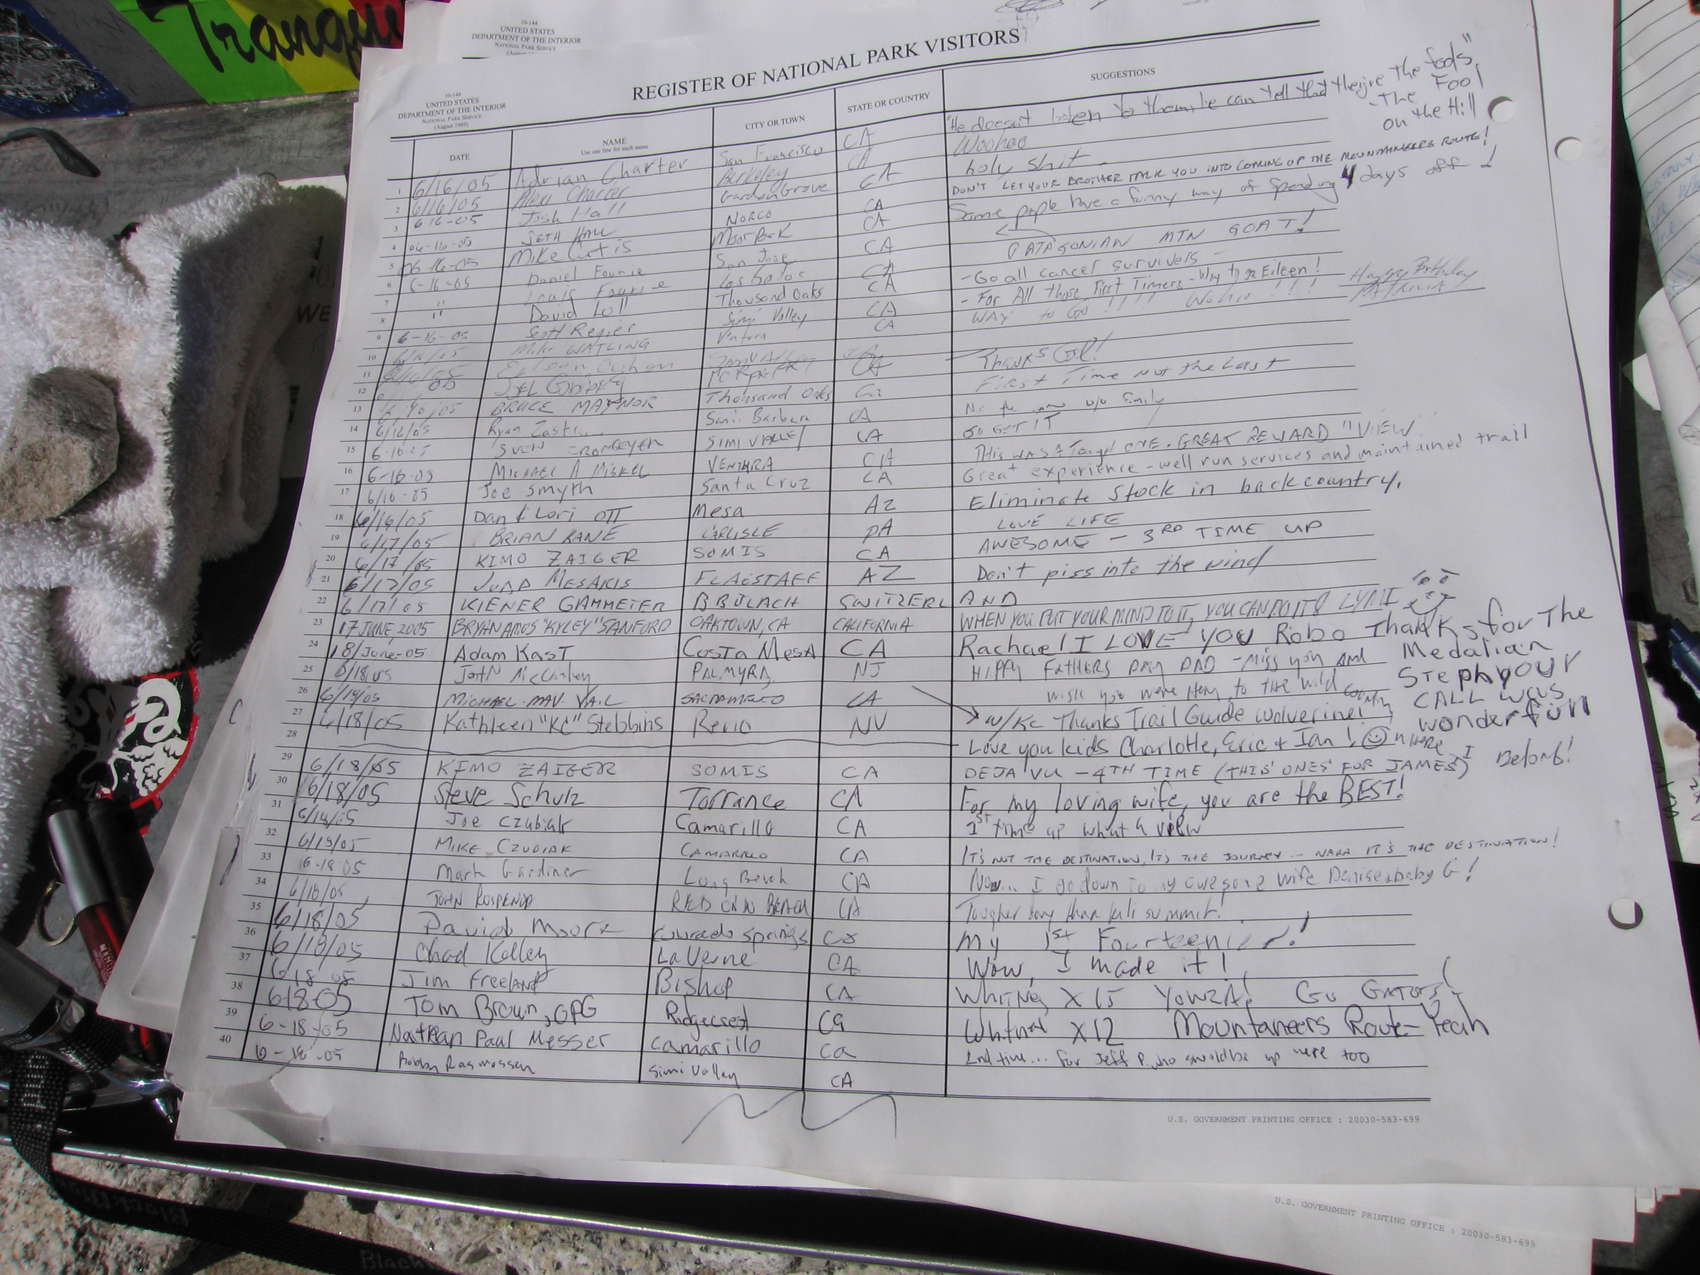 Tranqu
10-144
UNITED STATES
DEPARTMENT OF THE INTERIOR
NATIONAL PARK SERVICE
REGISTER OF NATIONAL PARK VISITORS
10-144
UNITED STATES
DEPARTMENT OF THE INTERIOR
NATIONAL PARK SERVICE
(August 1985)
DATE NAME CITY OR TOWN STATE OR COUNTRY SUGGESTIONS
Use one line for each name
"He doesn't listen to them, he can tell that they're the fools"
-The Fool
on the Hill
1 6/16/05 Adrian Charter San Francisco CA Woohoo
2 6/16/05 Charter Berkeley CA holy shit
3 6-16-05 Josh Hall Garden Grove CA DON'T LET YOUR BROTHER TALK YOU INTO COMING UP THE MOUNTAINEERS ROUTE!
4 06-16-05 SETH HALL NORCO CA Some people have a funny way of spending 4 days off
5 06-16-05 Mike Curtis Moorpark CA PATAGONIAN MTN GOAT!
6 6-16-05 Daniel Fournie San Jose CA -Go all cancer survivors -
7 " Louis Fournie Los Gatos CA - For All those First Timers - Way to go Eileen!
8 " David Lull Thousand Oaks CA WAY to GO!!!! Wohoo!!! Happy Birthday
9 6-16-05 Scott Regier Simi Valley CA
10 Mike WATLING Ventura CA
11 Thanks God!
12 First Time Not the Last
13 BRUCE MAYNOR Thousand Oaks
14 6/16/05 Ryan Santa Barbara CA GO GET IT
15 SVEN SIMI VALLEY CA THIS WAS A Tough ONE. GREAT REWARD "VIEW
16 6-16-05 MICHAEL A MISKEL VENTURA CA Great experience - well run services and maintained trail
17 6/16-05 Joe Smyth Santa Cruz CA Eliminate stock in backcountry.
18 6/16/05 Dan & Lori OTT Mesa AZ LOVE LIFE
19 6/17/05 BRIAN KANE CARLISLE PA AWESOME - 3RD TIME UP
20 6/17/05 KIMO ZAIGER SOMIS CA
21 6/17/05 FLAGSTAFF AZ Don't piss into the wind
22 6/17/05 KIENER GAMMETER BÜLACH SWITZERLAND
23 17 JUNE 2005 BRYAN AMOS "KYLEY" SANFORD OAKTOWN, CA CALIFORNIA WHEN YOU PUT YOUR MIND TO IT, YOU CAN DO IT! LYMI
24 18/June-05 Adam Kast Costa Mesa CA Rachael I LOVE YOU Robo Thanks for The
Medalian
Steph your
CALL was
wonderfull
25 6/18/05 John McCurley PALMYRA, NJ HAPPY FATHERS DAY DAD - MISS you AND
wish you were Here, to the wild country
26 6/18/05 MICHAEL SACRAMENTO CA
27 6/18/05 Kathleen "KC" Stebbins Reno NV w/KC Thanks Trail Guide Wolverine!
28 Love you kids Charlotte, Eric + Ian!
29 6/18/05 KIMO ZAIGER SOMIS CA DEJA VU - 4TH TIME (THIS ONES FOR JAMES) I Belong!
30 6/18/05 Steve Schulz Torrance CA For my loving wife, you are the BEST!
31 Joe Czubiak Camarillo CA 1st time up what a view
32 MIKE CZUBIAK CAMARILLO CA IT'S NOT THE DESTINATION, IT'S THE JOURNEY... NAAA IT'S THE DESTINATION!
33 6-18-05 Mark Gardiner Long Beach CA Now... I go down to my awesome wife Denise baby G!
34 6/18/05 JOHN REDONDO BEACH CA Tougher long than full summit.
35 6/18/05 David Moore Colorado Springs Co My 1st Fourteenier!
36 6/18/05 Chad Kelley La Verne CA Wow, I made it!
37 6-18-05 Jim Freeland Bishop CA WHITNEY X 15 YOWZA! Go GATORS!
38 6-18-05 Tom Brown, GPG Ridgecrest Ca Whitney X12 Mountaineers Route - Yeah
39 6-18-05 Nathan Paul Messer Camarillo Ca 2nd time... for Jeff P. who should be up here too
40 6-18-05 Robby Rasmussen Simi Valley CA
U.S. GOVERNMENT PRINTING OFFICE : 20030-583-699
U.S. GOVERNMENT PRINTING OFFICE : 20030-583-699
Black